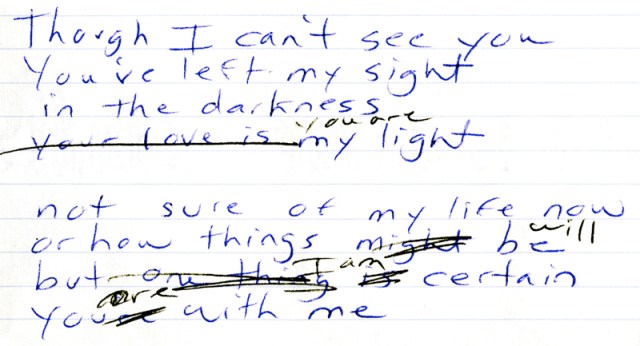 Though I can't see you
You've left my sight
in the darkness
you are
your love is my light
not sure of my life now
will
or how things might be
I am
but one thing is certain
are
you're with me